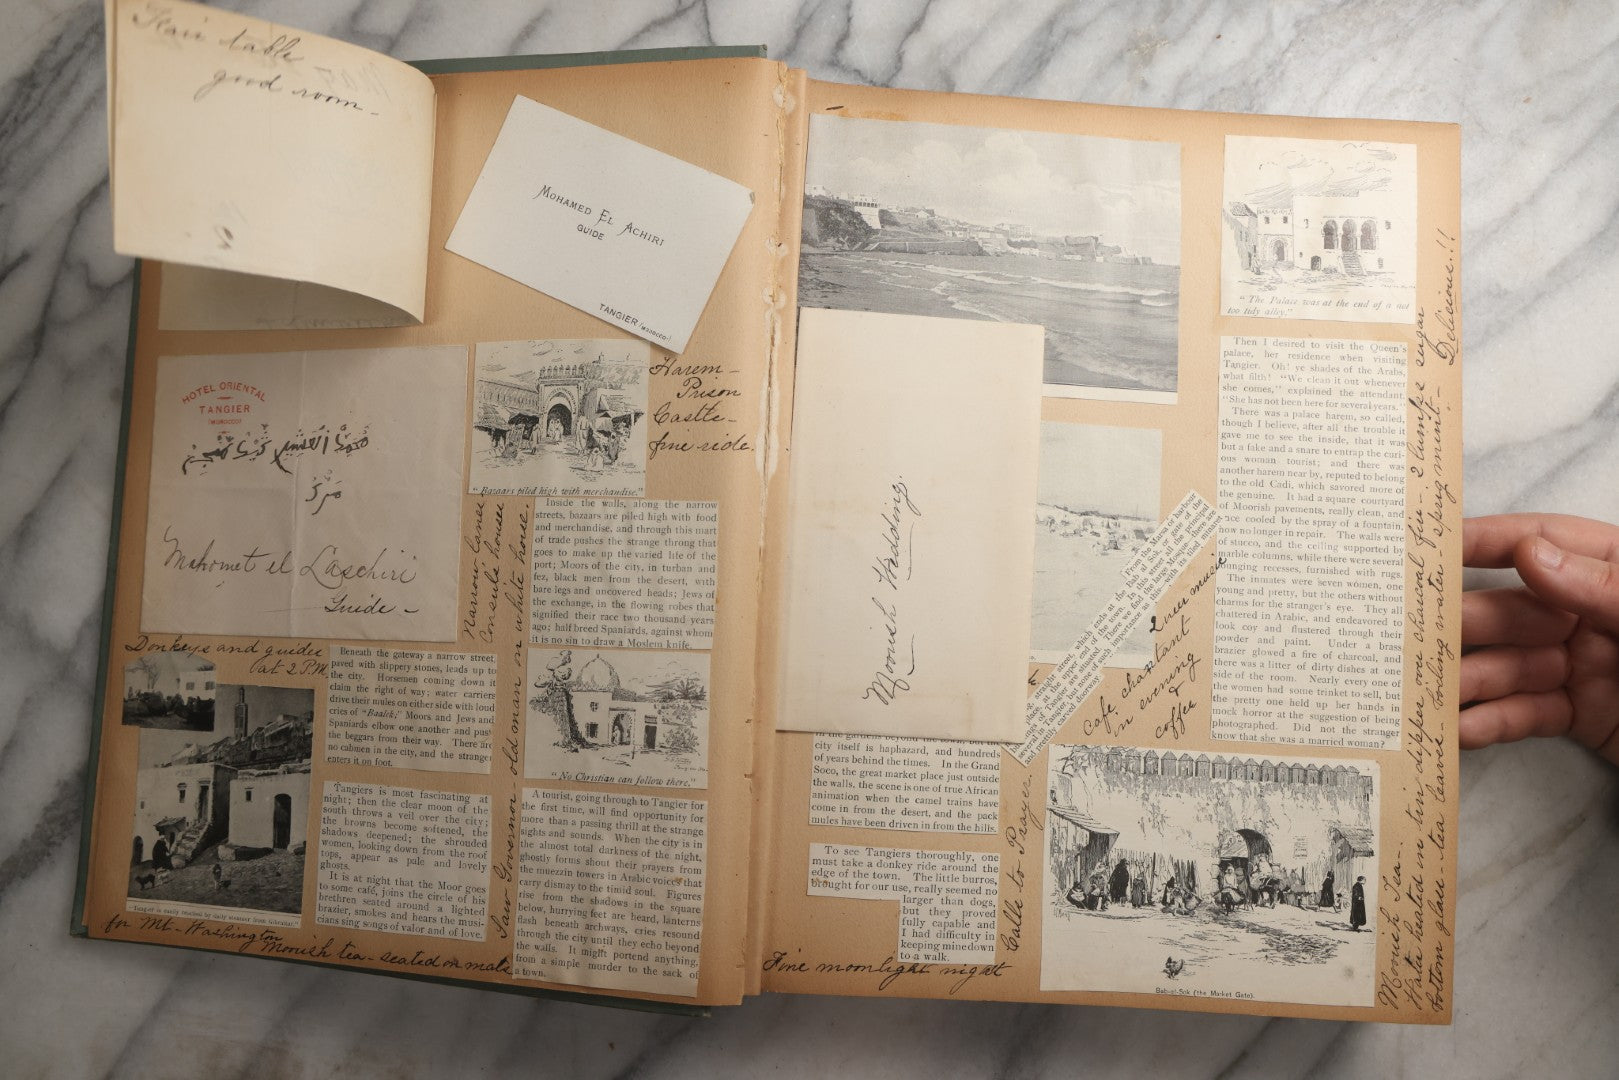 Fair table
good room -
MOHAMED EL ACHIRI
GUIDE
TANGIER (MOROCCO)
HOTEL ORIENTAL
TANGIER
(MOROCCO)
Mahomet el L'aschiri
Guide -
"Bazaars piled high with merchandise."
Harem -
Prison
Castle -
fine ride.
Narrow lanes
Consuls houses
Saw Governor - old man on white horse.
Inside the walls, along the narrow
streets, bazaars are piled high with food
and merchandise, and through this mart
of trade pushes the strange throng that
goes to make up the varied life of the
port; Moors of the city, in turban and
fez, black men from the desert, with
bare legs and uncovered heads; Jews of
the exchange, in the flowing robes that
signified their race two thousand years
ago; half breed Spaniards, against whom
it is no sin to draw a Moslem knife.
Donkeys and guides
at 2 P.M.
Beneath the gateway a narrow street,
paved with slippery stones, leads up to
the city. Horsemen coming down it
claim the right of way; water carriers
drive their mules on either side with loud
cries of "Baalek;" Moors and Jews and
Spaniards elbow one another and push
the beggars from their way. There are
no cabmen in the city, and the stranger
enters it on foot.
"No Christian can follow there."
Tangiers is most fascinating at
night; then the clear moon of the
south throws a veil over the city;
the browns become softened, the
shadows deepened; the shrouded
women, looking down from the roof
tops, appear as pale and lovely
ghosts.
It is at night that the Moor goes
to some café, joins the circle of his
brethren seated around a lighted
brazier, smokes and hears the musi-
cians sing songs of valor and of love.
A tourist, going through to Tangier for
the first time, will find opportunity for
more than a passing thrill at the strange
sights and sounds. When the city is in
the almost total darkness of the night,
ghostly forms shout their prayers from
the muezzin towers in Arabic voices that
carry dismay to the timid soul. Figures
rise from the shadows in the square
below, hurrying feet are heard, lanterns
flash beneath archways, cries resound
through the city until they echo beyond
the walls. It might portend anything,
from a simple murder to the sack of
a town.
Tangier is easily reached by daily steamer from Gibraltar.
for Mt - Washington
Moorish tea - seated on mats
Moorish Wedding.
"The Palace was at the end of a not
too tidy alley."
Then I desired to visit the Queen's
palace, her residence when visiting
Tangier. Oh! ye shades of the Arabs,
what filth! "We clean it out whenever
she comes," explained the attendant.
"She has not been here for several years."
There was a palace harem, so called,
though I believe, after all the trouble it
gave me to see the inside, that it was
but a fake and a snare to entrap the curi-
ous woman tourist; and there was
another harem near by, reputed to belong
to the old Cadi, which savored more of
the genuine. It had a square courtyard
of Moorish pavements, really clean, and
once cooled by the spray of a fountain,
now no longer in repair. The walls were
of stucco, and the ceiling supported by
marble columns, while there were several
lounging recesses, furnished with rugs.
The inmates were seven women, one
young and pretty, but the others without
charms for the stranger's eye. They all
chattered in Arabic, and endeavored to
look coy and flustered through their
powder and paint. Under a brass
brazier glowed a fire of charcoal, and
there was a litter of dirty dishes at one
side of the room. Nearly every one of
the women had some trinket to sell, but
the pretty one held up her hands in
mock horror at the suggestion of being
photographed. Did not the stranger
know that she was a married woman?
café chantant
in evening
Queer music
&
coffee
city itself is haphazard, and hundreds
of years behind the times. In the Grand
Soco, the great market place just outside
the walls, the scene is one of true African
animation when the camel trains have
come in from the desert, and the pack
mules have been driven in from the hills.
To see Tangiers thoroughly, one
must take a donkey ride around the
edge of the town. The little burros,
brought for our use, really seemed no
larger than dogs,
but they proved
fully capable and
I had difficulty in
keeping mine down
to a walk.
Calls to Prayer.
Fine moonlight night
Bab-el-Sok (the Market Gate).
Moorish Tea -.
Water heated in tin dipper over charcoal fire - 2 lumps sugar
bottom glass - tea leaves - boiling water - sprig mint - Delicious!!